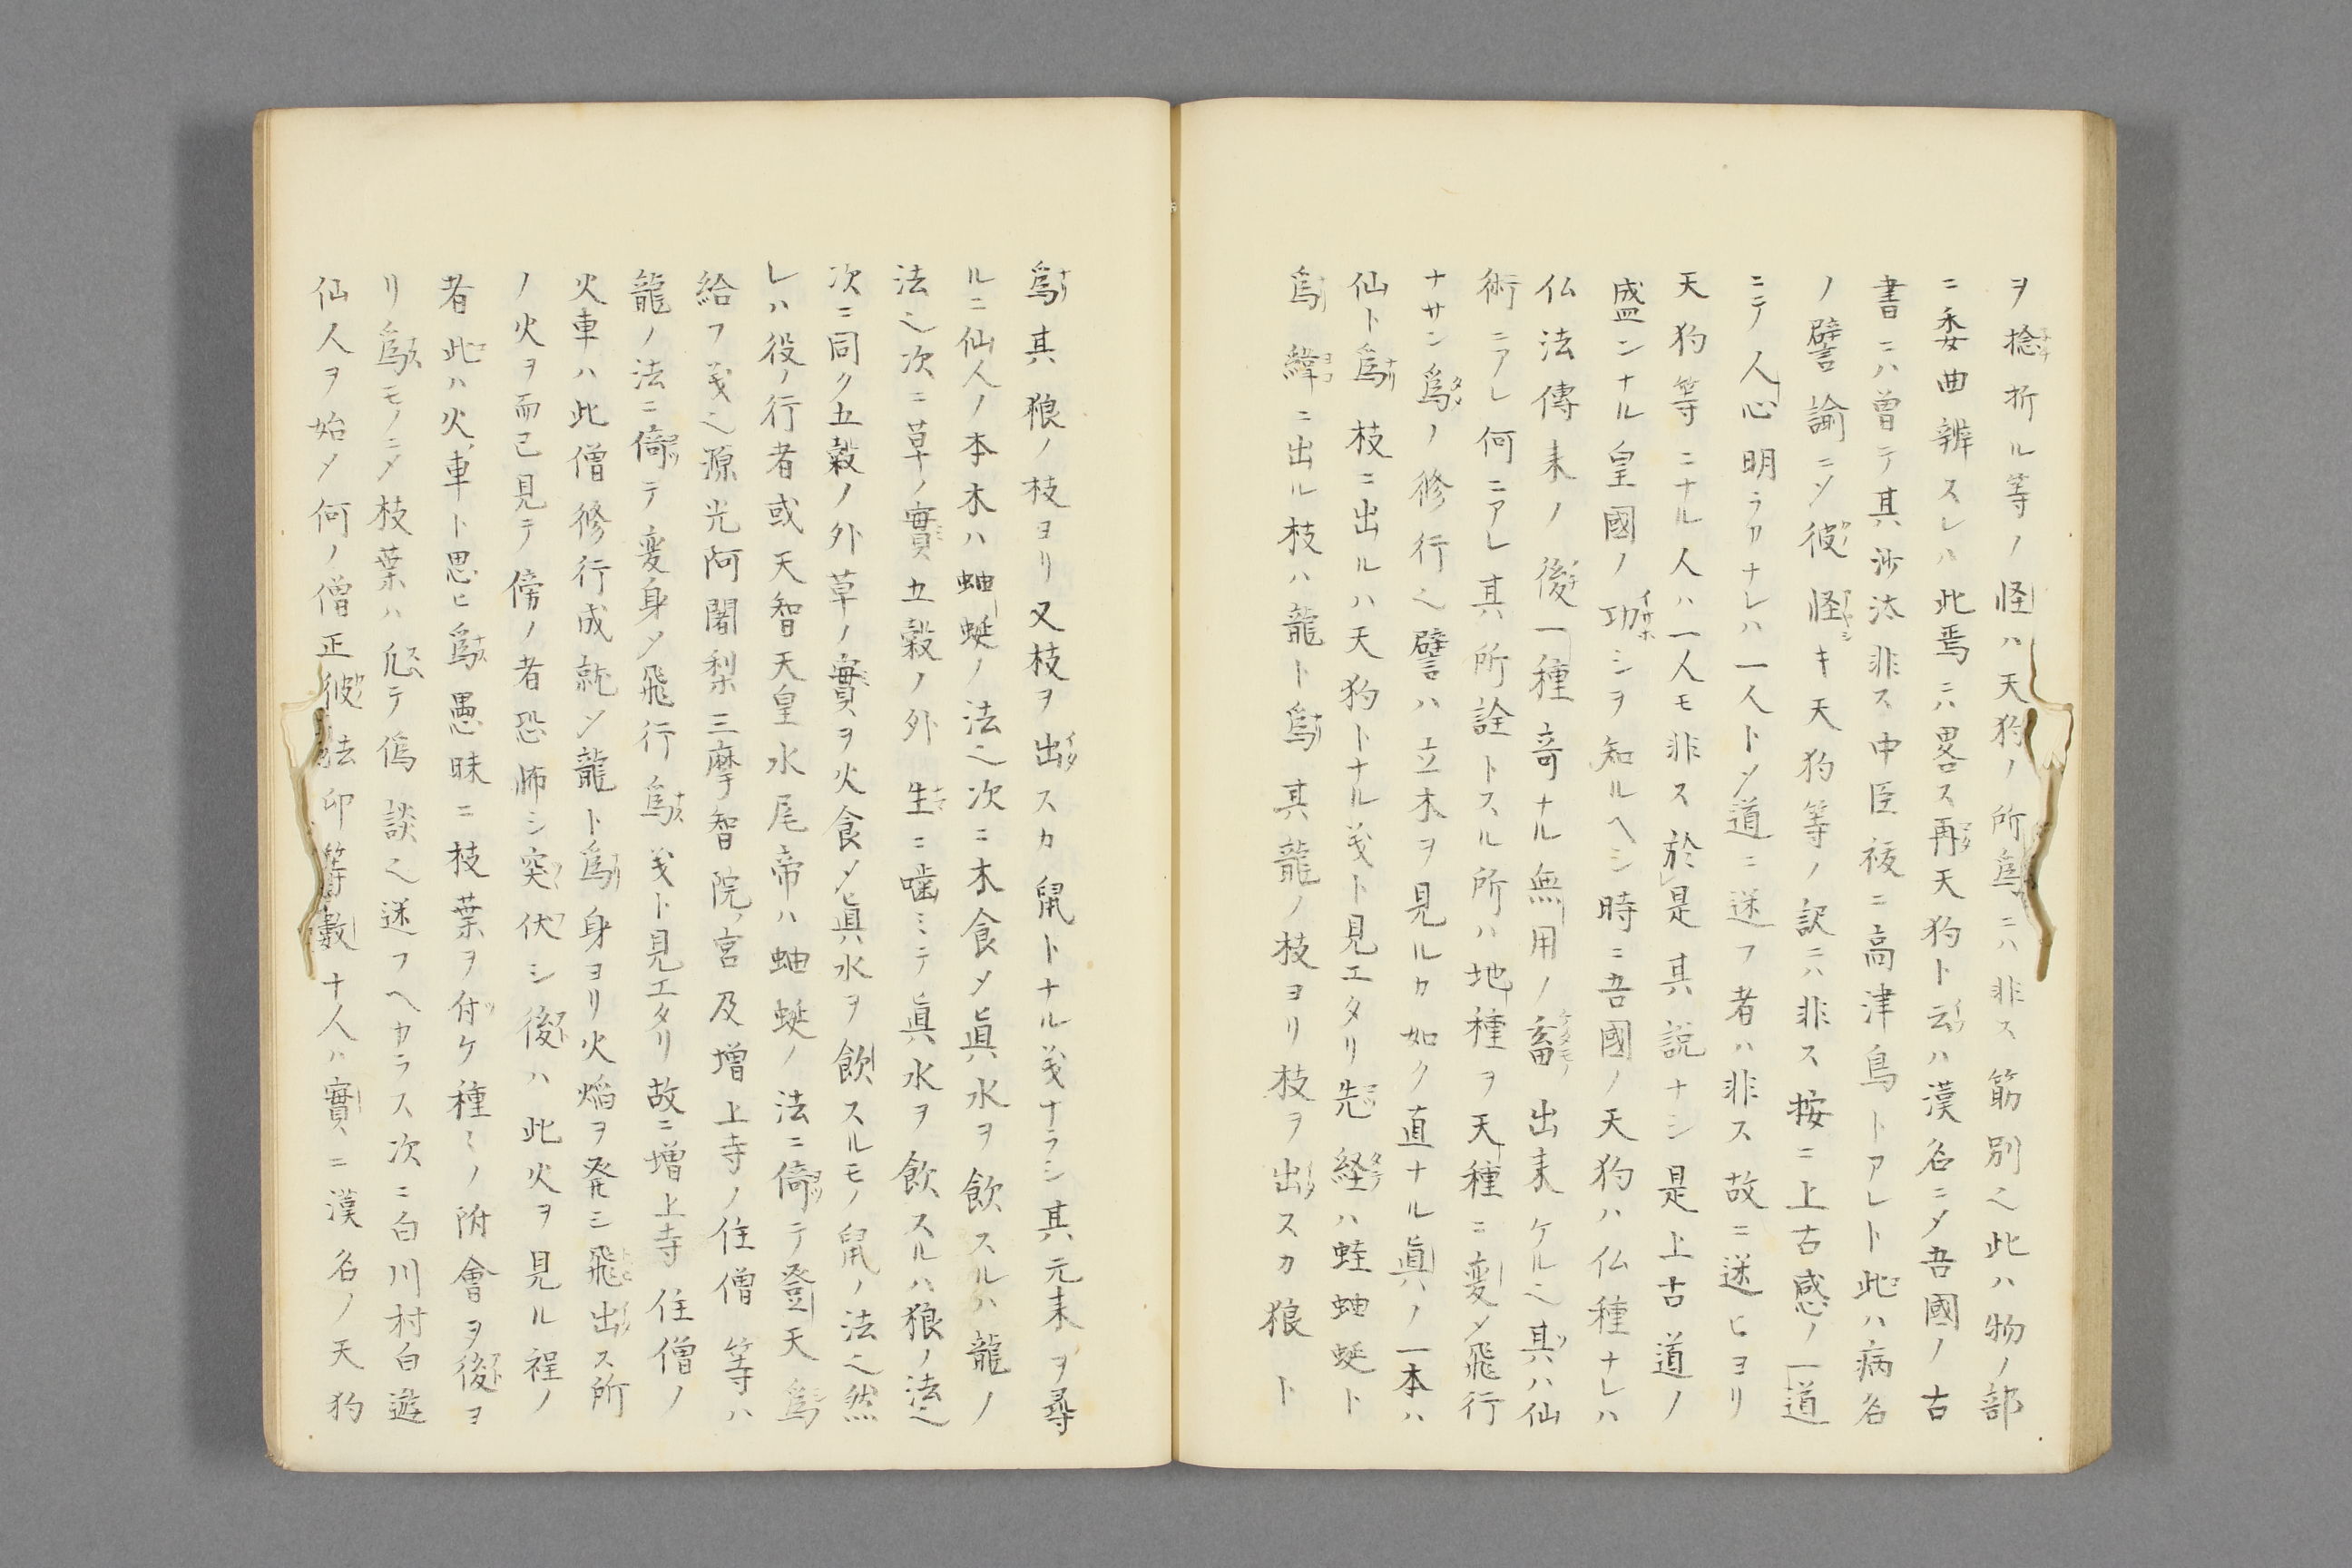 ヲ捻折ル等ノ怪ハ天狗ノ所為ニハ非ス筋別之此ハ物ノ部
ニ委曲辨スレハ此焉ニハ畧ス再天狗ト云ハ漢名ニメ吾國ノ古
書ニハ曽テ其沙汰非ス中臣祓ニ高津鳥トアレト此ハ病名
ノ譬諭ニメ彼怪キ天狗等ノ訳ニハ非ス按ニ上古惑ノ一道
ニテ人心明ラカナレハ一人トメ道ニ迷フ者ハ非ス故ニ迷ヒヨリ
天狗等ニナル人ハ一人モ非ス於是其説ナシ是上古道ノ
盛ンナル皇國ノ功シヲ知ルヘシ時ニ吾國ノ天狗ハ仏種ナレハ
仏法傳来ノ後一種竒ナル無用ノ畜出来ケル之其ハ仙
術ニアレ何ニアレ其所詮トスル所ハ地種ヲ天種ニ変メ飛行
ナサン為ノ修行之譬ハ立木ヲ見ルカ如ク直ナル眞ノ一本ハ
仙ト為枝ニ出ルハ天狗トナル義ト見エタリ先経ハ蛙蚰蜒ト
為緯ニ出ル枝ハ龍ト為其龍ノ枝ヨリ枝ヲ出スカ狼ト
為其狼ノ枝ヨリ又枝ヲ出スカ鼠トナル義ナラシ其元来ヲ尋
ルニ仙人ノ本木ハ蚰蜒ノ法之次ニ木食メ眞水ヲ飲スルハ龍ノ
法之次ニ草ノ實五穀ノ外生ニ噛ミテ眞水ヲ飲スルハ狼ノ法之
次ニ同ク五穀ノ外草ノ實ヲ火食メ眞水ヲ飲スルモノ鼠ノ法之然
レハ役ノ行者或天智天皇水尾帝ハ蚰蜒ノ法ニ倚テ登天為
給フ義之源光阿闍梨三摩智院ノ宮及増上寺ノ住僧等ハ
龍ノ法ニ倚テ変身メ飛行為義ト見エタリ故ニ増上寺住僧ノ
火車ハ此僧修行成就メ龍ト為身ヨリ火焔ヲ発シ飛出ス所
ノ火ヲ而已見テ傍ノ者恐怖シ突伏シ後ハ此火ヲ見ル程ノ
者此ハ火車ト思ヒ為愚昧ニ枝葉ヲ付ケ種ミノ附會ヲ後ヲ
リ為モノニメ枝葉ハ凢テ偽談之迷フヘカラス次ニ白川村白遊
仙人ヲ始メ何ノ僧正彼法印等數十人ハ實ニ漢名ノ天狗